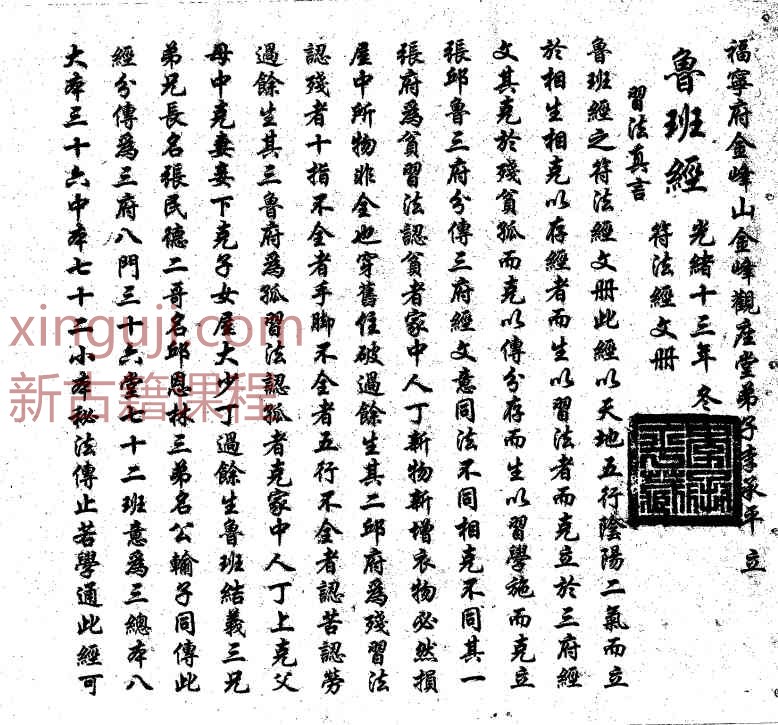 福寧府金峰山金峰觀座堂弟子李承平 立
魯班經 光緒十三年 冬
符法經文冊
習法真言
魯班經之符法經文冊此經以天地五行陰陽二氣而立
於相生相克以存經者而生以習法者而克立於三府經
文其克於殘貧孤而克以傳分存而生以習學施而克立
張邱魯三府分傳三府經文意同法不同相克不同其一
張府為貧習法認貧者家中人丁新物新增衣物必然損
屋中所物非全也穿舊住破過餘生其二邱府為殘習法
認殘者十指不全者手腳不全者五行不全者認苦認勞
過餘生其三魯府為孤習法認孤者克家中人丁上克父
母中克妻妾下克子女屋大少丁過餘生魯班結義三兄
弟兄長名張民德二哥名邱恩林三弟名公輸子同傳此
經分傳為三府八門三十六堂七十二班意為三總本八
大本三十六中本七十二小本秘法傳止若學通此經可
xinguji.com
新古籍课程